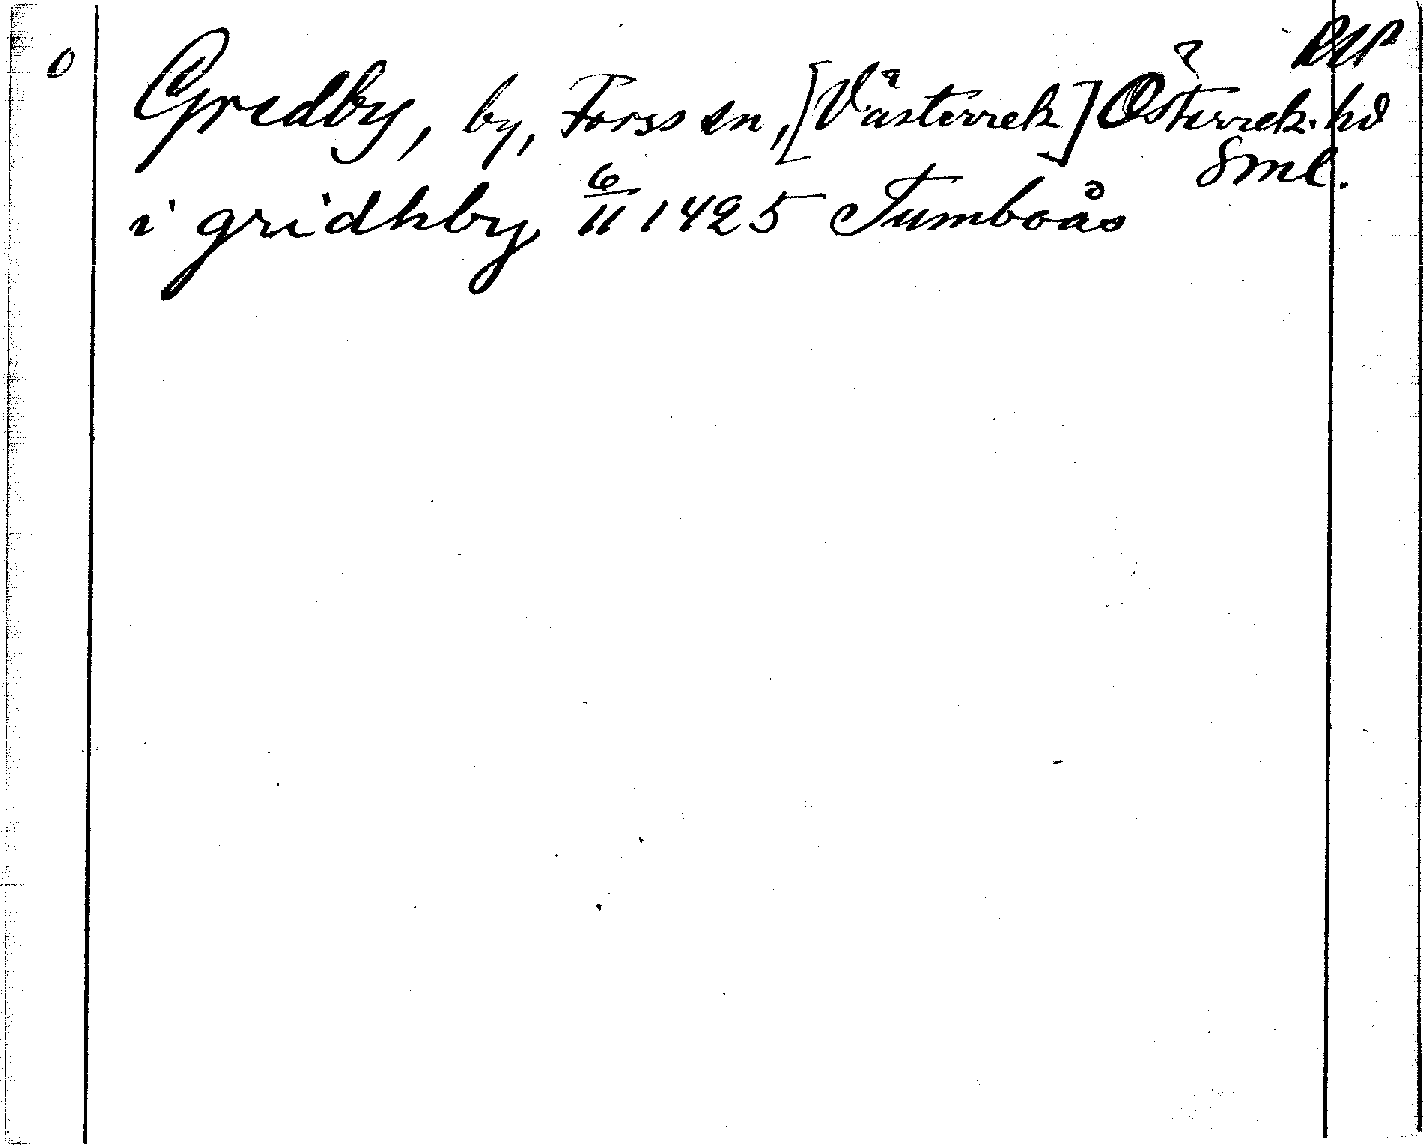 0
RAP
Gredby, by, Forss sn, [Västerrek] Österrek. hd
Sml.
i gridhby 6/11 1425 Tumboås